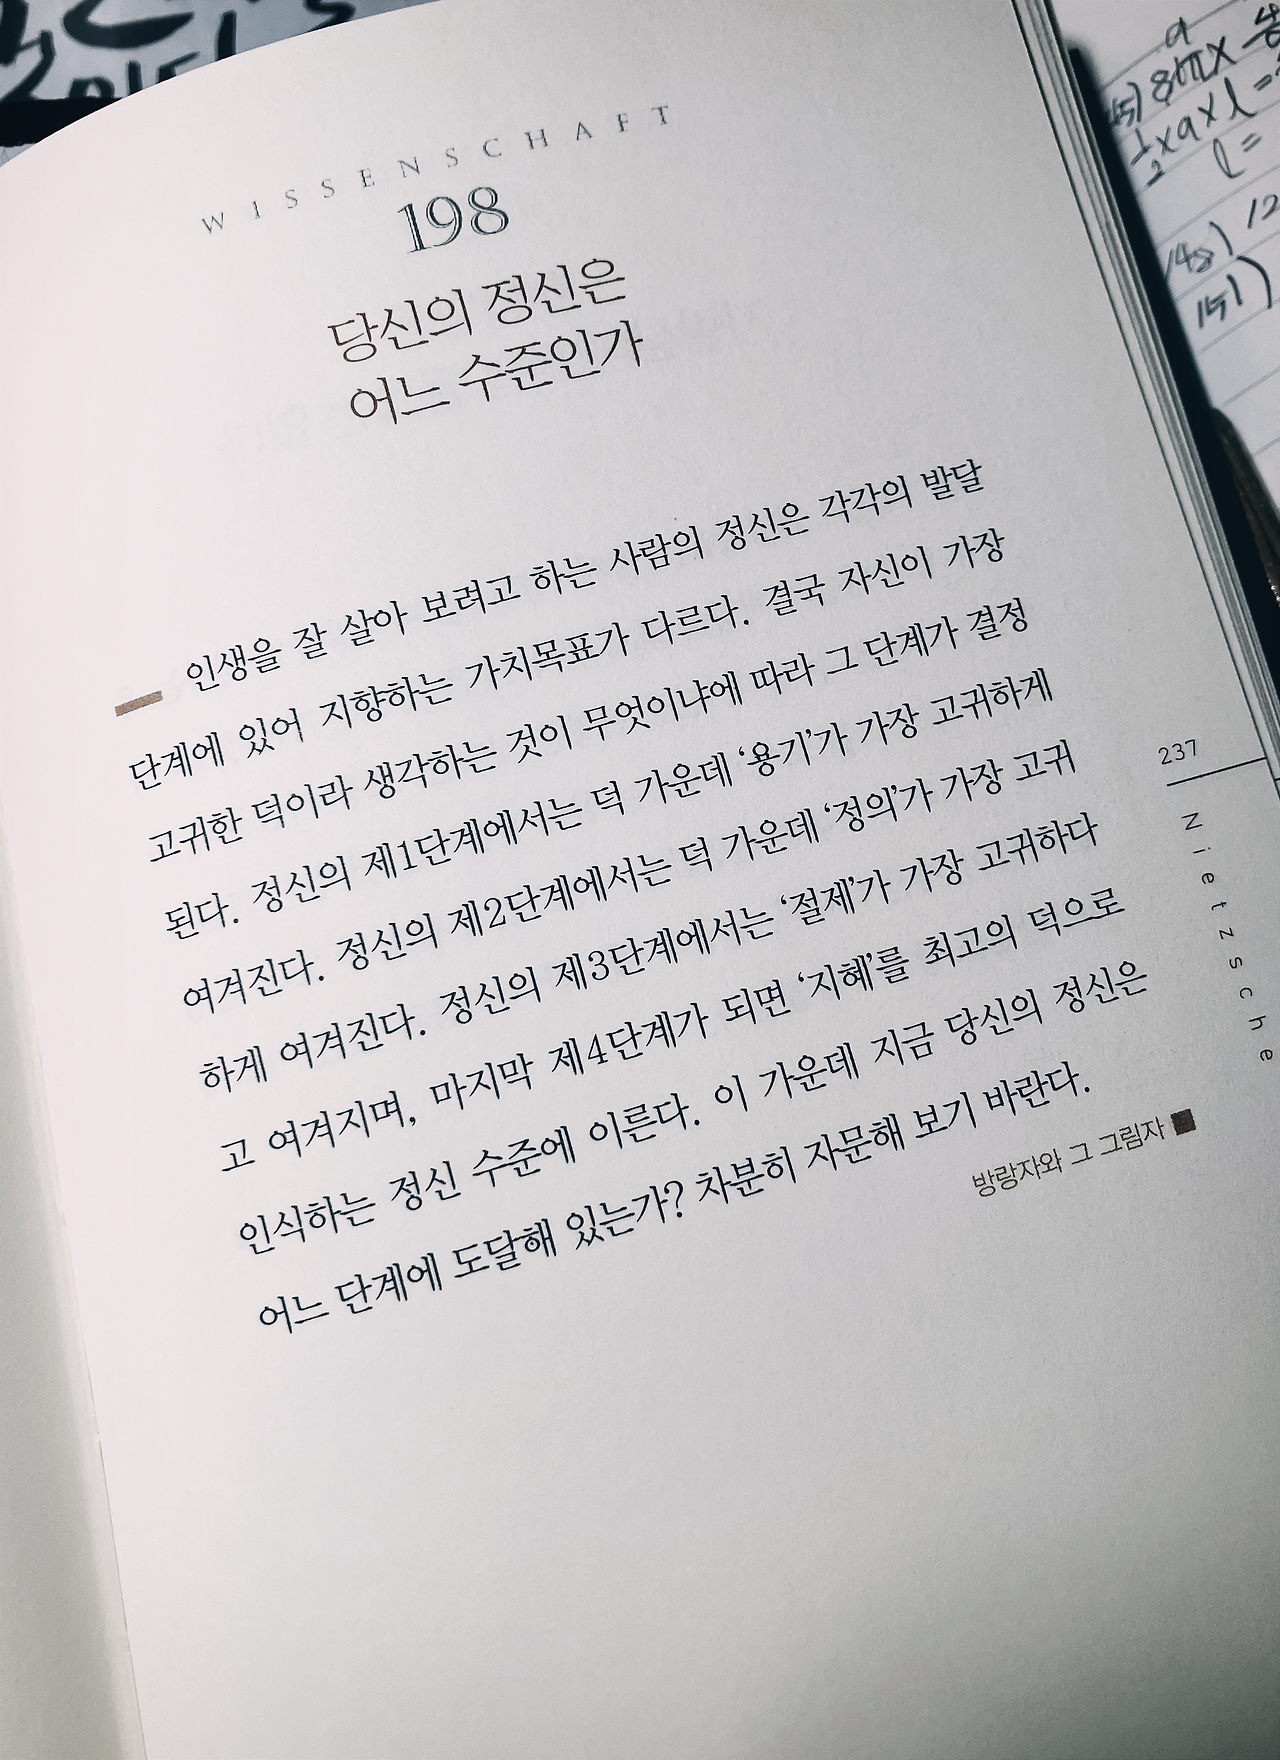 WISSENSCHAFT
198
당신의 정신은
어느 수준인가
인생을 잘 살아 보려고 하는 사람의 정신은 각각의 발달
단계에 있어 지향하는 가치목표가 다르다. 결국 자신이 가장
고귀한 덕이라 생각하는 것이 무엇이냐에 따라 그 단계가 결정
된다. 정신의 제1단계에서는 덕 가운데 ‘용기’가 가장 고귀하게
여겨진다. 정신의 제2단계에서는 덕 가운데 ‘정의’가 가장 고귀
하게 여겨진다. 정신의 제3단계에서는 ‘절제’가 가장 고귀하다
고 여겨지며, 마지막 제4단계가 되면 ‘지혜’를 최고의 덕으로
인식하는 정신 수준에 이른다. 이 가운데 지금 당신의 정신은
어느 단계에 도달해 있는가? 차분히 자문해 보기 바란다.
방랑자와 그 그림자
237
Nietzsche